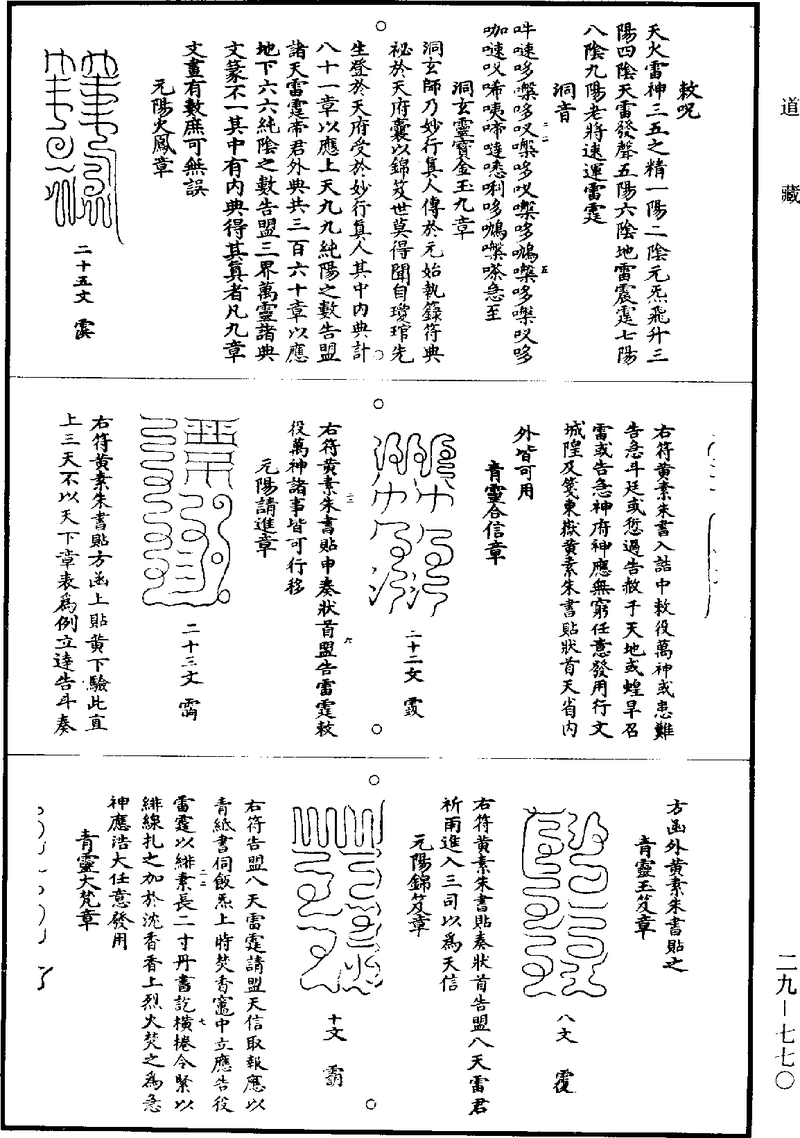 道藏
敕呪
天火雷神三五之精一陽二陰元炁飛升三
陽四陰天雷發聲五陽六陰地雷震霆七陽
八陰九陽老將速運雷霆
洞音
吽𠺗哆㘑哆㕧㘑哆㕧㘑哆㘑哆㘑㕧哆
咖𠺗㕧唏咦啼噠㘃唎哆㘑嗏急至
洞玄靈寶金玉九章
洞玄師乃妙行真人傳於元始執籙符典
祕於天府囊以錦笈世莫得聞自瓊琯先
生登於天府受於妙行真人其中內典計
八十一章以應上天九九純陽之數告盟
諸天雷霆帝君外典共三百六十章以應
地下六六純陰之數告盟三界萬靈諸典
文篆不一其中有內典得其真者凡九章
文畫有數庶可無誤
元陽火鳳章
二十五文
右符黃素朱書入誥中敕役萬神或患難
告急斗廷或愆過告赦于天地或蝗旱召
雷或告急神府神應無窮任意發用行文
城隍及箋東嶽黃素朱書貼狀首天省內
外皆可用
青靈合信章
二十二文
右符黃素朱書貼申奏狀首盟告雷霆敕
役萬神諸事皆可行移
元陽請進章
二十三文
右符黃素朱書貼方函上貼黃下驗此直
上三天不以天下章表為例立達告斗奏
方函外黃素朱書貼之
青靈玉笈章
八文
右符黃素朱書貼奏狀首告盟八天雷君
祈雨進入三司以為天信
元陽錦笈章
十文
右符告盟八天雷霆請盟天信取報應以
青紙書伺飯炁上時焚香竈中立應告役
雷霆以緋素長二寸丹書訖橫捲令緊以
緋線扎之加於沈香香上烈火焚之為急
神應浩大任意發用
青靈大梵章
二九—七七〇